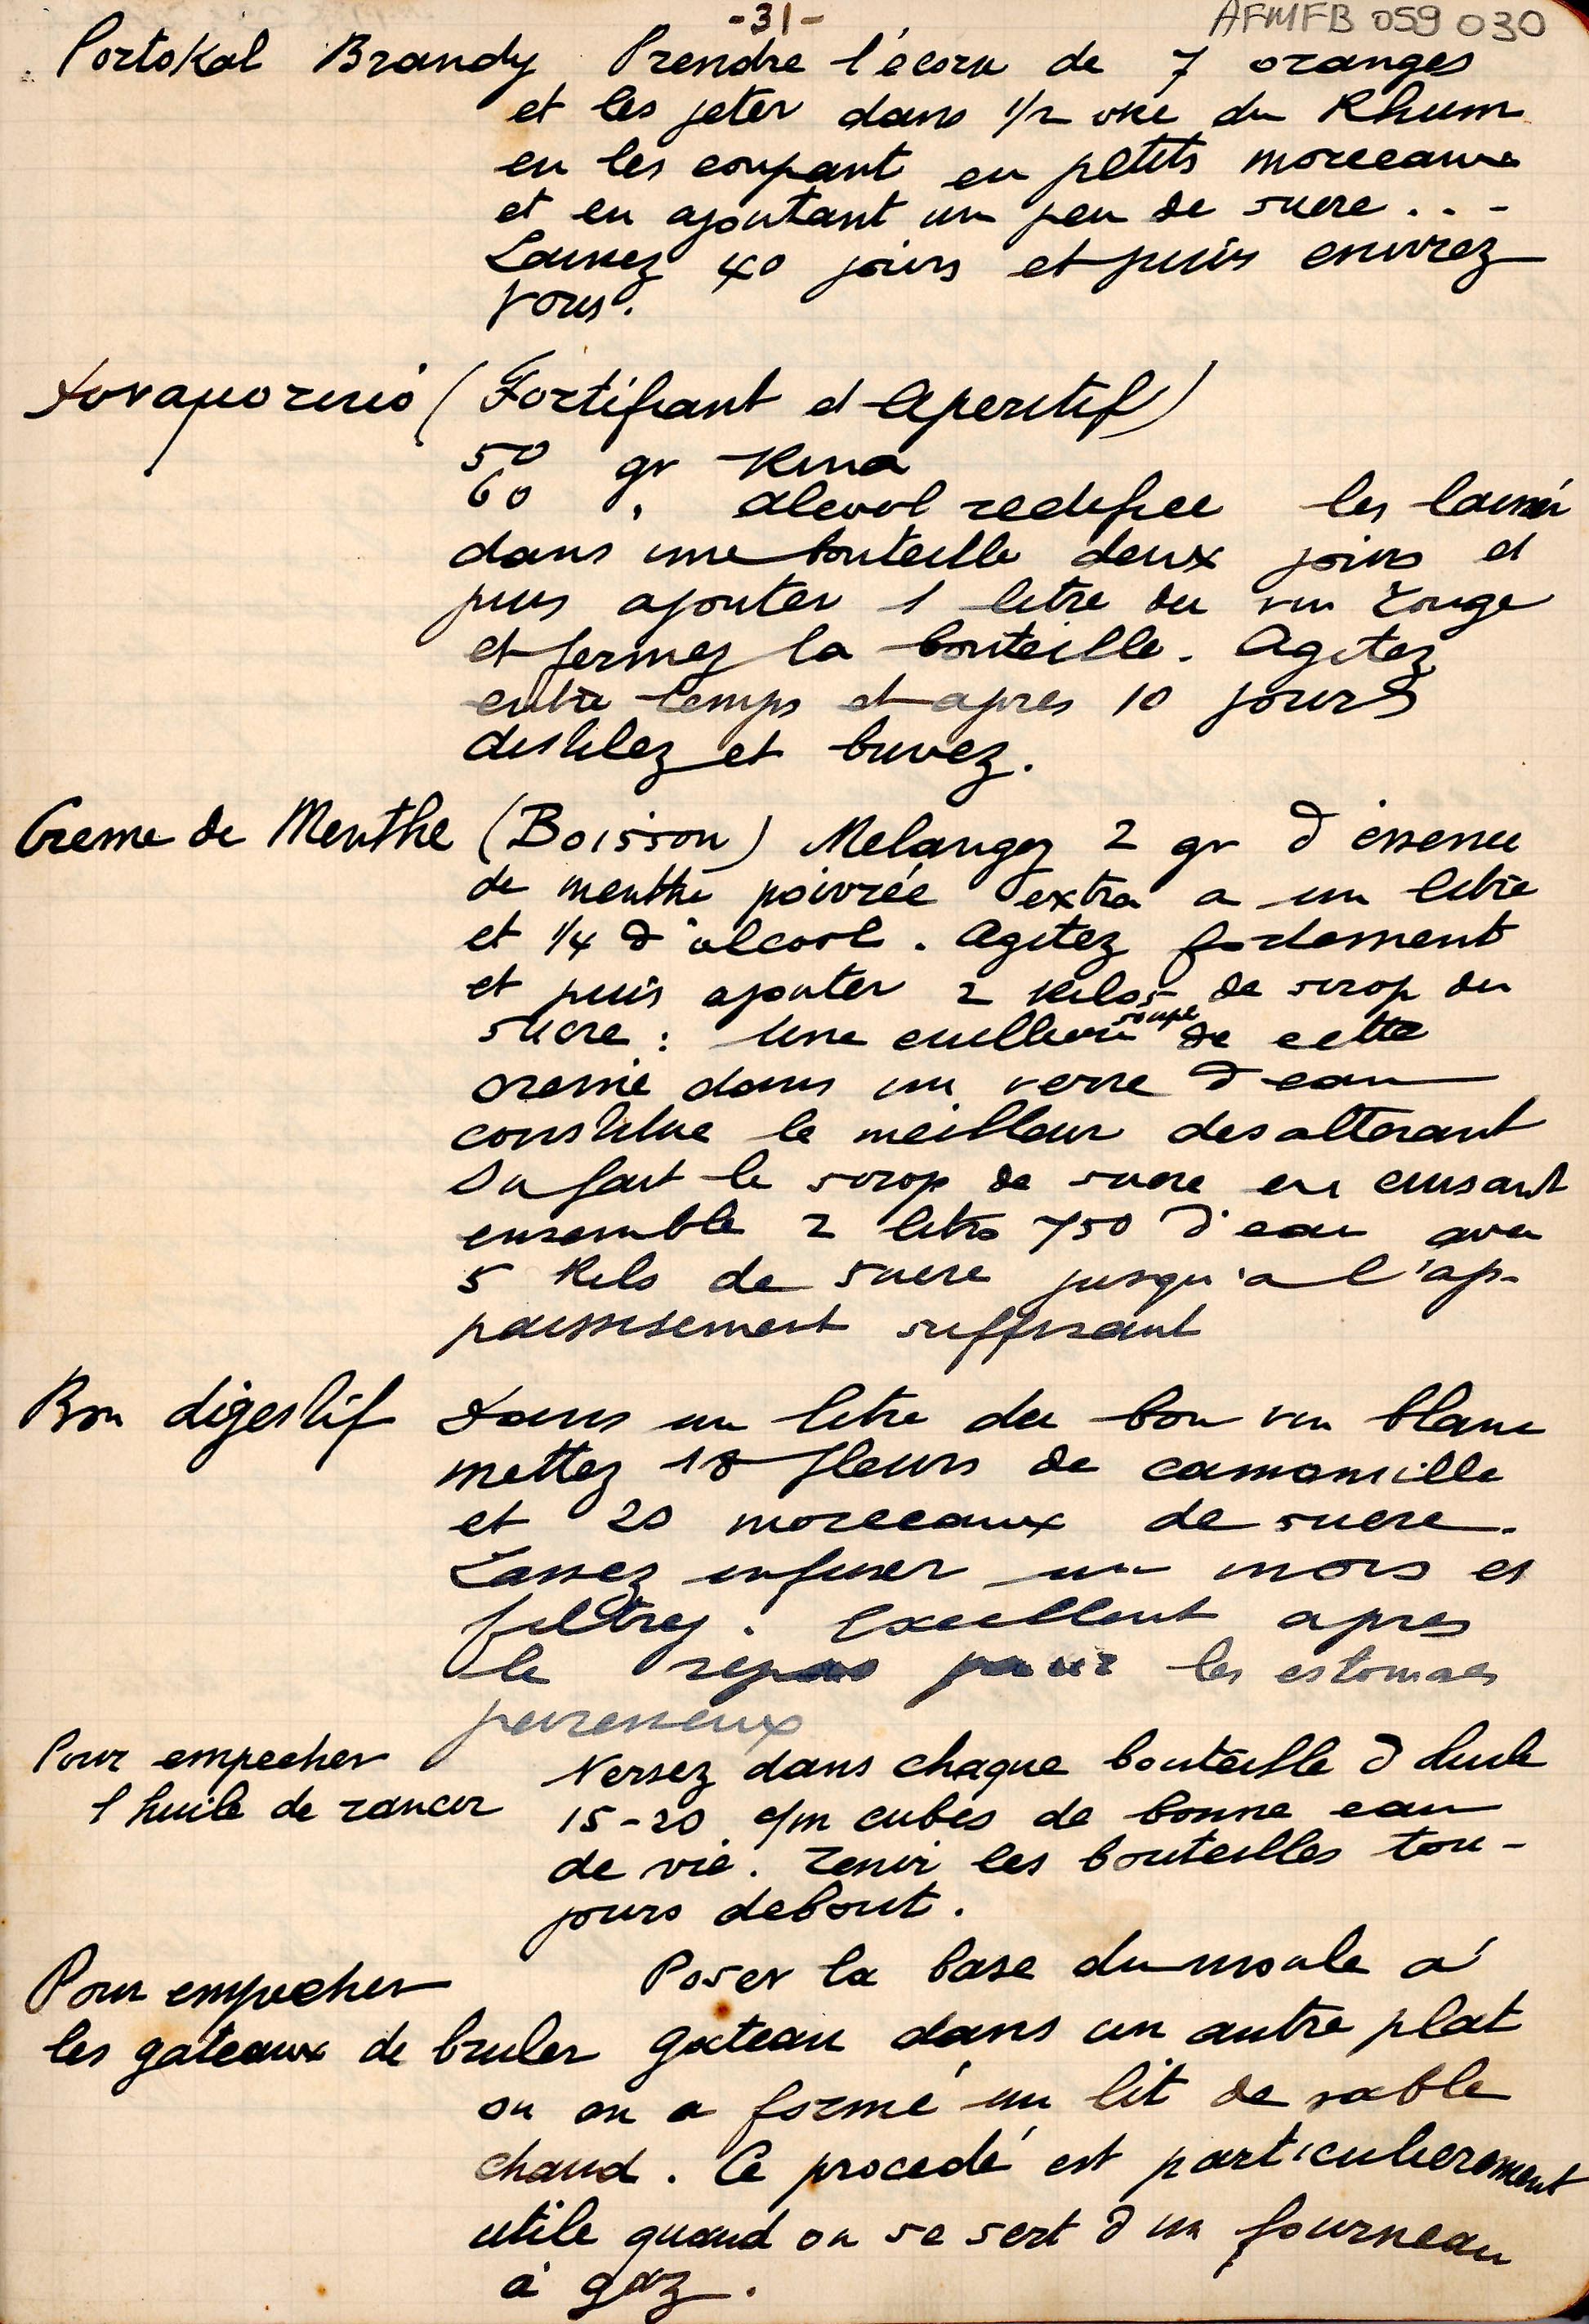 -31-
AFMFB 059 030
Portokal Brandy Prendre l'écorce de 7 oranges
et les jeter dans 1/2 oke du Rhum
en les coupant en petits morceaux
et en ajoutant un peu de sucre . . -
Laissez 40 jours et puis enivrez
vous.
Δυναμοτικό (Fortifiant et Aperitif)
50 gr Kina
60 " alcool redifiee les laisser
dans une bouteille deux jours et
puis ajouter 1 litre du vin rouge
et fermez la bouteille. Agitez
entre temps et apres 10 jours
distilez et buvez.
Creme de Menthe (Boisson) Melangez 2 gr d'essence
de menthe poivrée extra a un litre
et 1/4 d'alcool. Agitez fortement
et puis ajouter 2 kilos de sirop du
sucre : Une cuillere soupe de cette
creme dans un verre d'eau
constitue le meilleur desalterant
On fait le sirop de sucre en cuisant
ensemble 2 litres 750 d'eau avec
5 kilo de sucre jusqu'a l'ap-
paississement suffisant
Bon digestif Dans un litre du bon vin blanc
mettez 18 fleurs de camomille
et 20 morceaux de sucre.
Laissez infuser un mois et
filtrez. Excellent apres
le repas pour les estomacs
paresseux
Pour empecher
l'huile de rancir
Versez dans chaque bouteille d huile
15-20 c/m cubes de bonne eau
de vie. Tenir les bouteilles tou-
jours debout.
Pour empecher Poser la base du moule à
les gateaux de bruler gateau dans un autre plat
ou on a formé un lit de sable
chaud. Ce procedé est particulierement
utile quand on se sert d'un fourneau
à gaz.